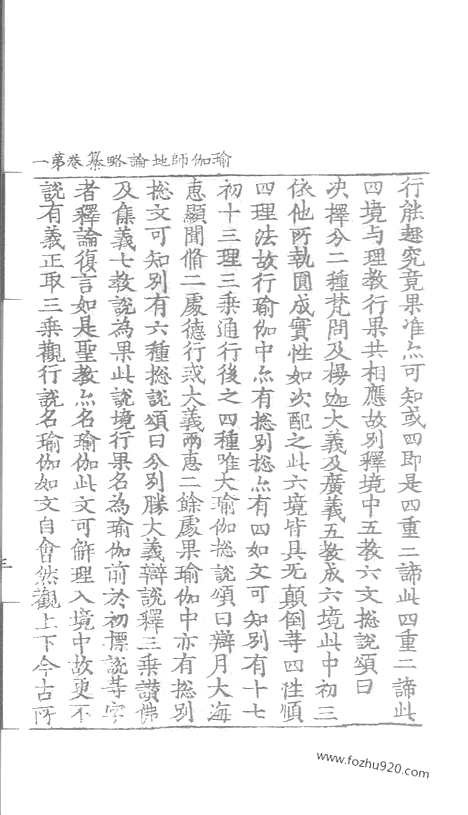 瑜伽師地論略纂卷第一
行能趣究竟果准亦可知或四即是四重二諦此四重二諦此
四境与理教行果共相應故別釋境中五教六文揔說頌曰
决擇分二種梵問及楊迦大義及廣義五教成六境此中初三
依他所執圓成實性如次配之此六境皆具无顛倒等四性順
四理法故行瑜伽中亦有揔別揔亦有四如文可知別有十七
初十三理三乘通行後之四種唯大瑜伽揔說頌曰辯月大海
惠顯聞脩二處德行或大義兩惠二餘處果瑜伽中亦有揔別
揔文可知別有六種揔說頌曰分別勝大義辯說釋三乘讚佛
及集義七教說為果此說境行果名為瑜伽前於初標說等字
者釋論復言如是聖教亦名瑜伽此文可解理入境中故更不
說有義正取三乘觀行說名瑜伽如文自會然觀上下今古所
三
www.fozhu920.com